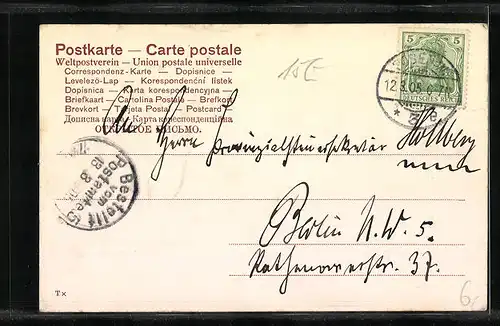 Postkarte — Carte postale
Weltpostverein — Union postale universelle
Correspondenz-Karte — Dopisnice —
Levelezö-Lap — Korespondenční lístek
Dopisnica — Karta korespondencyjna —
Briefkaart — Cartolina Postale — Brefkort
Brevkort — Tarjeta Postal — Postcard
Дописна карта — Карта корреспонденційна
ОТКРЫТОЕ ПИСЬМО.
15E
5 5
DEUTSCHES REICH
12.3.05. 6-7
An
Herrn Provinzialsteuersekretär
Berlin N.W. 5.
Rathenowerstr. 37.
Bestellt
vom
Postamte
T×
6,